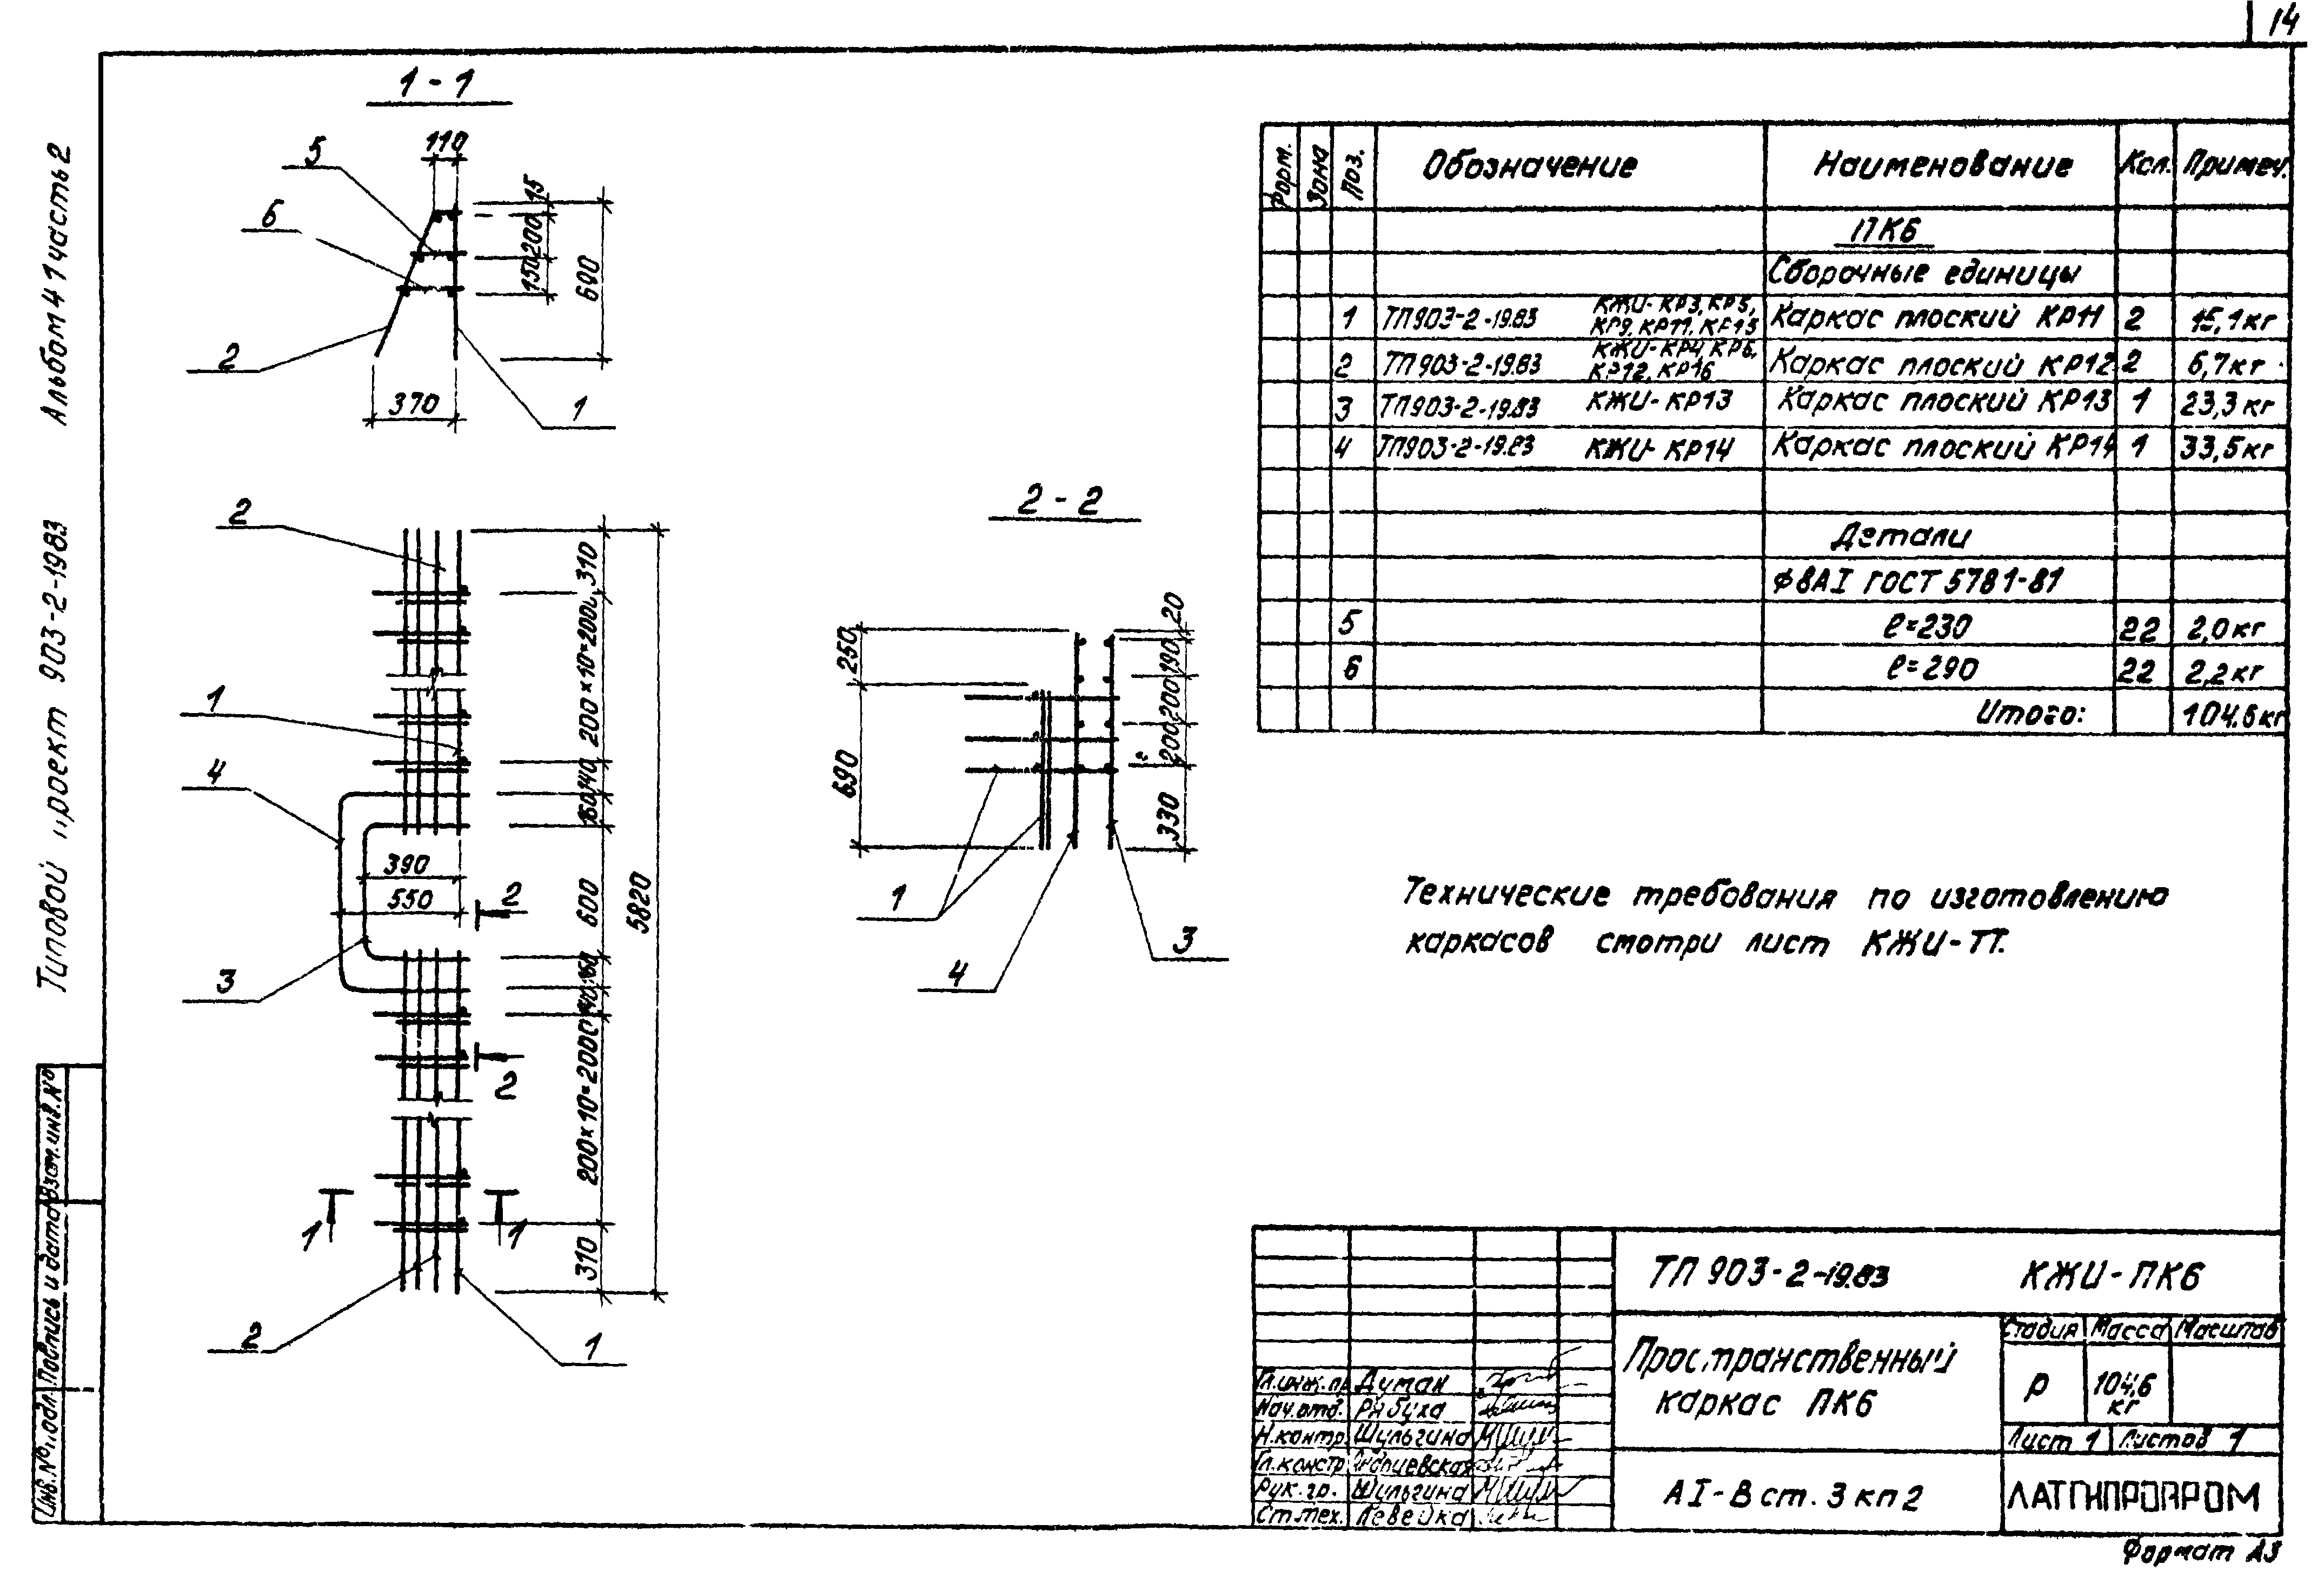 14
Альбом 4 1 часть 2
Типовой проект 903-2-1983
1 - 1
110
5
6
2
1
15
200
150
690
370
2
1
4
3
2
1
310
200×10=2000
140
160
600
160
140
200×10=2000
310
5820
390
550
2
2
1
1
2 - 2
250
690
20
190
200
200
330
1
4
3
Форм. Зона Поз. Обозначение Наименование Кол. Примеч.
ПК6
Сборочные единицы
1 ТП903-2-19.83 КЖИ-КР3, КР5, КР9, КР11, КР15 Каркас плоский КР11 2 15,1кг
2 ТП903-2-19.83 КЖИ-КР4, КР6, КР12, КР16 Каркас плоский КР12 2 6,7кг
3 ТП903-2-19.83 КЖИ-КР13 Каркас плоский КР13 1 23,3кг
4 ТП903-2-19.83 КЖИ-КР14 Каркас плоский КР14 1 33,5кг
Детали
Ф8АI ГОСТ 5781-81
5 ℓ=230 22 2,0кг
6 ℓ=290 22 2,2кг
Итого: 104.6кг
Технические требования по изготовлению
каркасов смотри лист КЖИ-ТТ.
Взам.инв.№
Подпись и дата
Инв.№ подл.
ТП 903-2-19.83 КЖИ-ПК6
Пространственный
каркас ПК6
Стадия Масса Масштаб
Р 104,6
кг
Лист 1 Листов 1
АI-В ст. 3 кп 2
ЛАТГИПРОПРОМ
Гл.инж.пр Думан
Нач.отд. Рябуха
Н.контр. Шульгина
Гл.констр
Рук.гр. Шульгина
Ст.тех. Левейка
Формат А3